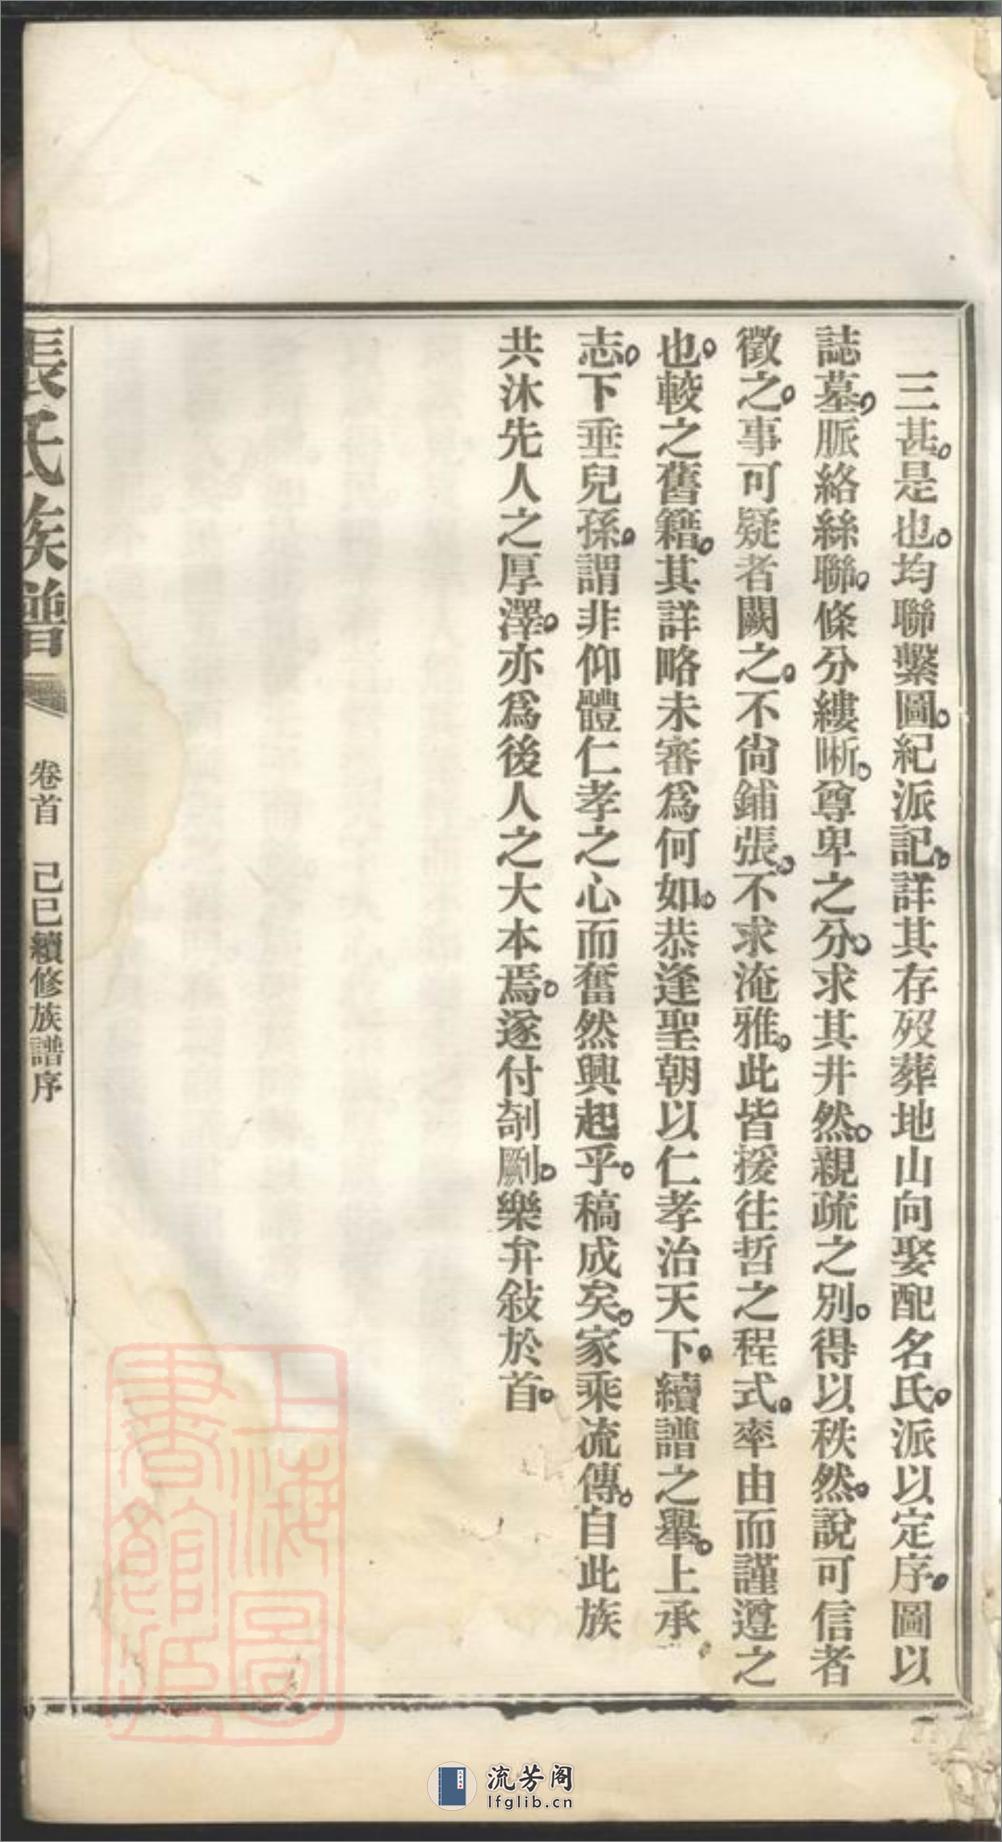 三甚。是也。均聯繫圖。紀派記。詳其存歿葬地山向娶配名氏。派以定序。圖以
誌墓。脈絡絲聯。條分縷晰。尊卑之分。求其井然。親疏之別。得以秩然。說可信者
徵之。事可疑者闕之。不尙鋪張。不求淹雅。此皆援往哲之程式。率由而謹遵之
也。較之舊籍。其詳略未審爲何如。恭逢聖朝以仁孝治天下。續譜之舉。上承
志。下垂兒孫。謂非仰體仁孝之心而奮然興起乎。稿成矣。家乘流傳。自此族
共沐先人之厚澤。亦爲後人之大本焉。遂付剞劂。樂弁敍於首。
張氏族譜
卷首 己巳續修族譜序
上海圖
書館藏
流芳阁
lfglib.cn